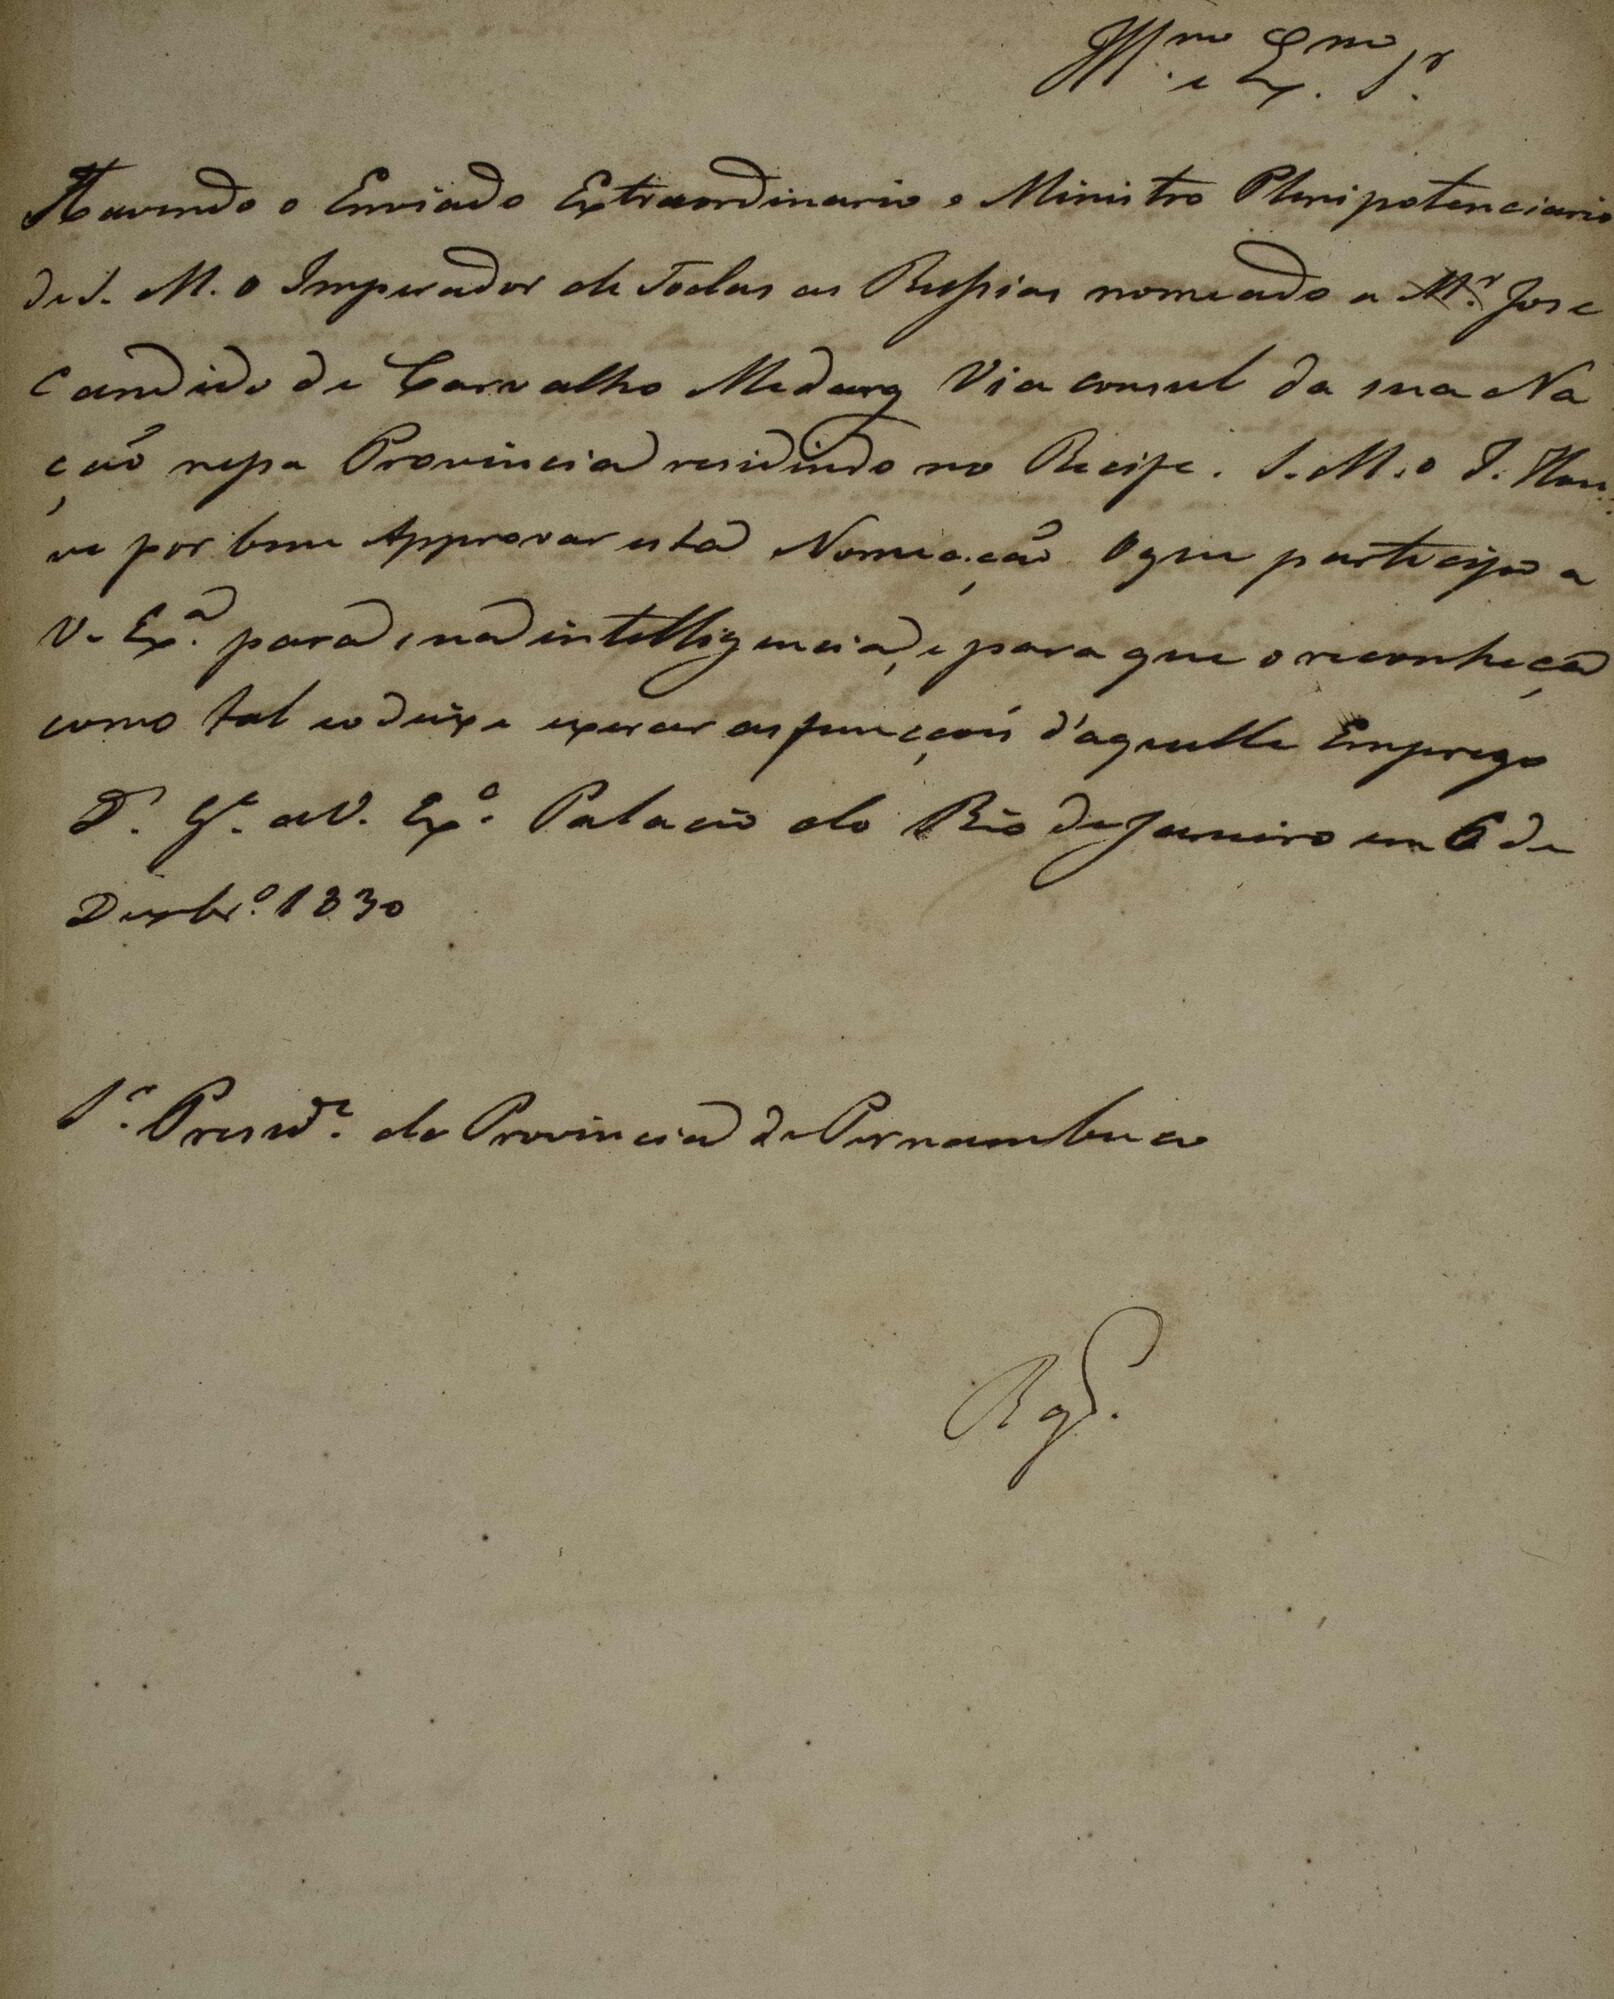 Illmo. e Exmo. Sr.
Havendo o Enviado Extraordinario e Ministro Plenipotenciario
de S. M. o Imperador de Todas as Russias nomeado a Mr. Jose
Candido de Carvalho Vice consul da sua Na
ção nessa Provincia residindo no Recife. S. M. o I. Hou
ve por bem Approvar esta Nomeação. O que participo a
V. Exa. para sua intelligencia, e para que o reconheça
como tal e o deixe exercer as funcçoens d'aquelle Emprego
D. Ge. a V. Exa. Palacio do Rio de Janeiro em 6 de
Dezbro. 1830
Sr. Preside. da Provincia de Pernambuco